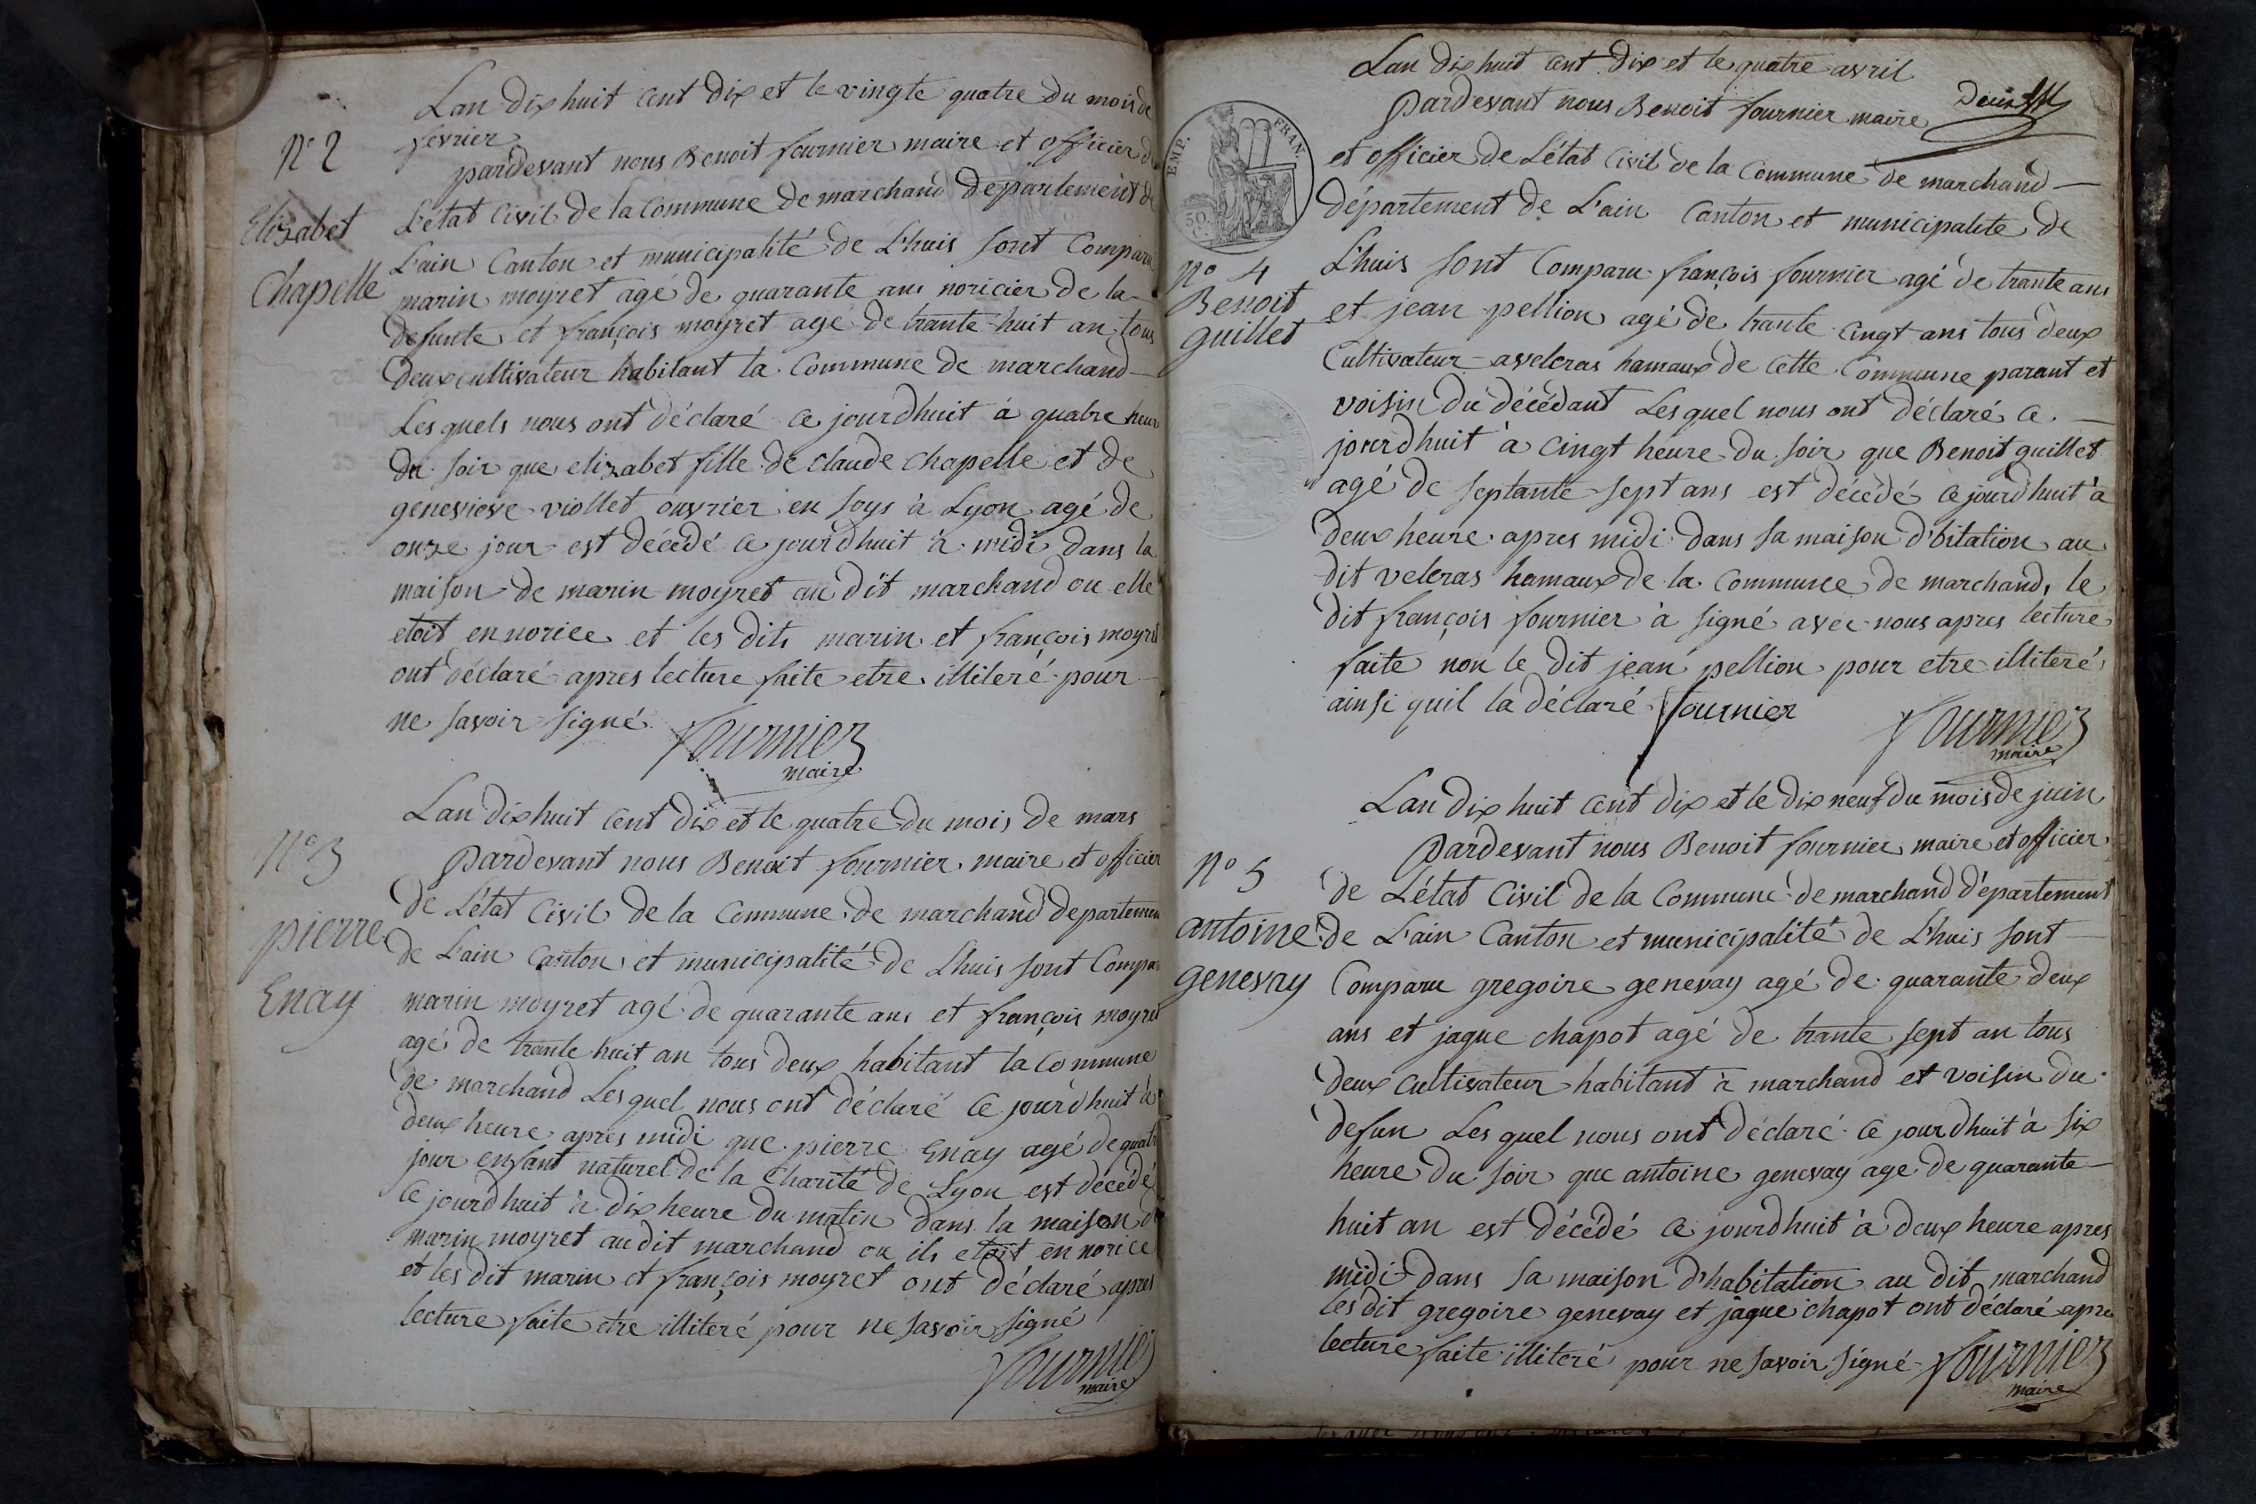 Lan dix huit cent dix et le vingte quatre du mois de
février
N° 2
pardevant nous Benoit fournier maire et officier de
L'état Civil de la Commune de marchand département de
Elizabet
L'ain Canton et municipalité de L'huis sont Comparu
Chapelle
marin moyret agé de quarante ans noricier de la
defunte et françois moyret agé de trante huit an tous
deux cultivateur habitant la Commune de marchand
Les quels nous ont déclaré ce jourdhuit à quatre heure
du soir que elizabet fille de claude chapelle et de
genevieve viollet ouvrier en soys à Lyon agé de
onze jour est décédé ce jourdhuit à midi dans la
maison de marin moyret au dit marchand ou elle
etoit en norice et les dits marin et françois moyret
ont déclaré apres lecture faite etre illiteré pour
ne savoir signé
fournier
maire
Lan dix huit cent dix et le quatre du mois de mars
N° 3
pardevant nous Benoit fournier maire et officier
de L'état Civil de la Commune de marchand departement
pierre
de L'ain Canton et municipalité de L'huis sont Compa
Enay
marin moyret agé de quarante ans et françois moyret
agé de trante huit an tous deux habitant la Commune
de marchand Les quel nous ont déclaré ce jourdhuit à
deux heure apres midi que pierre Enay agé de quatre
jour enfant naturel de la Charité de Lyon est décédé
ce jourdhuit à dix heure du matin dans la maison de
marin moyret audit marchand ou ils etoit en norice
et les dit marin et françois moyret ont déclaré apres
lecture faite etre illiteré pour ne savoir signé
fournier
maire
Lan dix huit cent dix et le quatre avril
pardevant nous Benoit fournier maire
EMP. FRAN.
50 C.
et officier de L'état Civil de la Commune de marchand
département de L'ain Canton et municipalité de
N° 4
L'huis sont Comparu françois fournier agé de trante ans
Benoit
et jean pellion agé de trante cingt ans tous deux
guillet
Cultivateur a veleras hamaux de cette Commune parant et
voisin du décédant Les quel nous ont déclaré ce
jourdhuit à cingt heure du soir que Benoit guillet
agé de septante sept ans est décédé ce jourdhuit à
deux heure apres midi dans sa maison d'bitation au
dit veleras hamaux de la Commune de marchand, le
dit françois fournier à signé avec nous apres lecture
faite non le dit jean pellion pour etre illiteré
ainsi quil la déclaré fournier
fournier
maire
Lan dix huit cent dix et lé dix neuf du mois de juin
pardevant nous Benoit fournier maire et officier
N° 5
de L'état Civil de la Commune de marchand d'épartement
antoine
de L'ain Canton et municipalité de L'huis sont
genevay
Comparu gregoire genevay agé de quarante deux
ans et jaque chapot agé de trante sept an tous
deux cultivateur habitant à marchand et voisin du
defun Les quel nous ont déclaré ce jourdhuit à six
heure du soir que antoine genevay age de quarante
huit an est décédé ce jourdhuit à deux heure apres
midi dans sa maison d'habitation au dit marchand
les dit gregoire genevay et jaque chapot ont déclaré apre
lecture faite illiteré pour ne savoir signé
fournier
maire